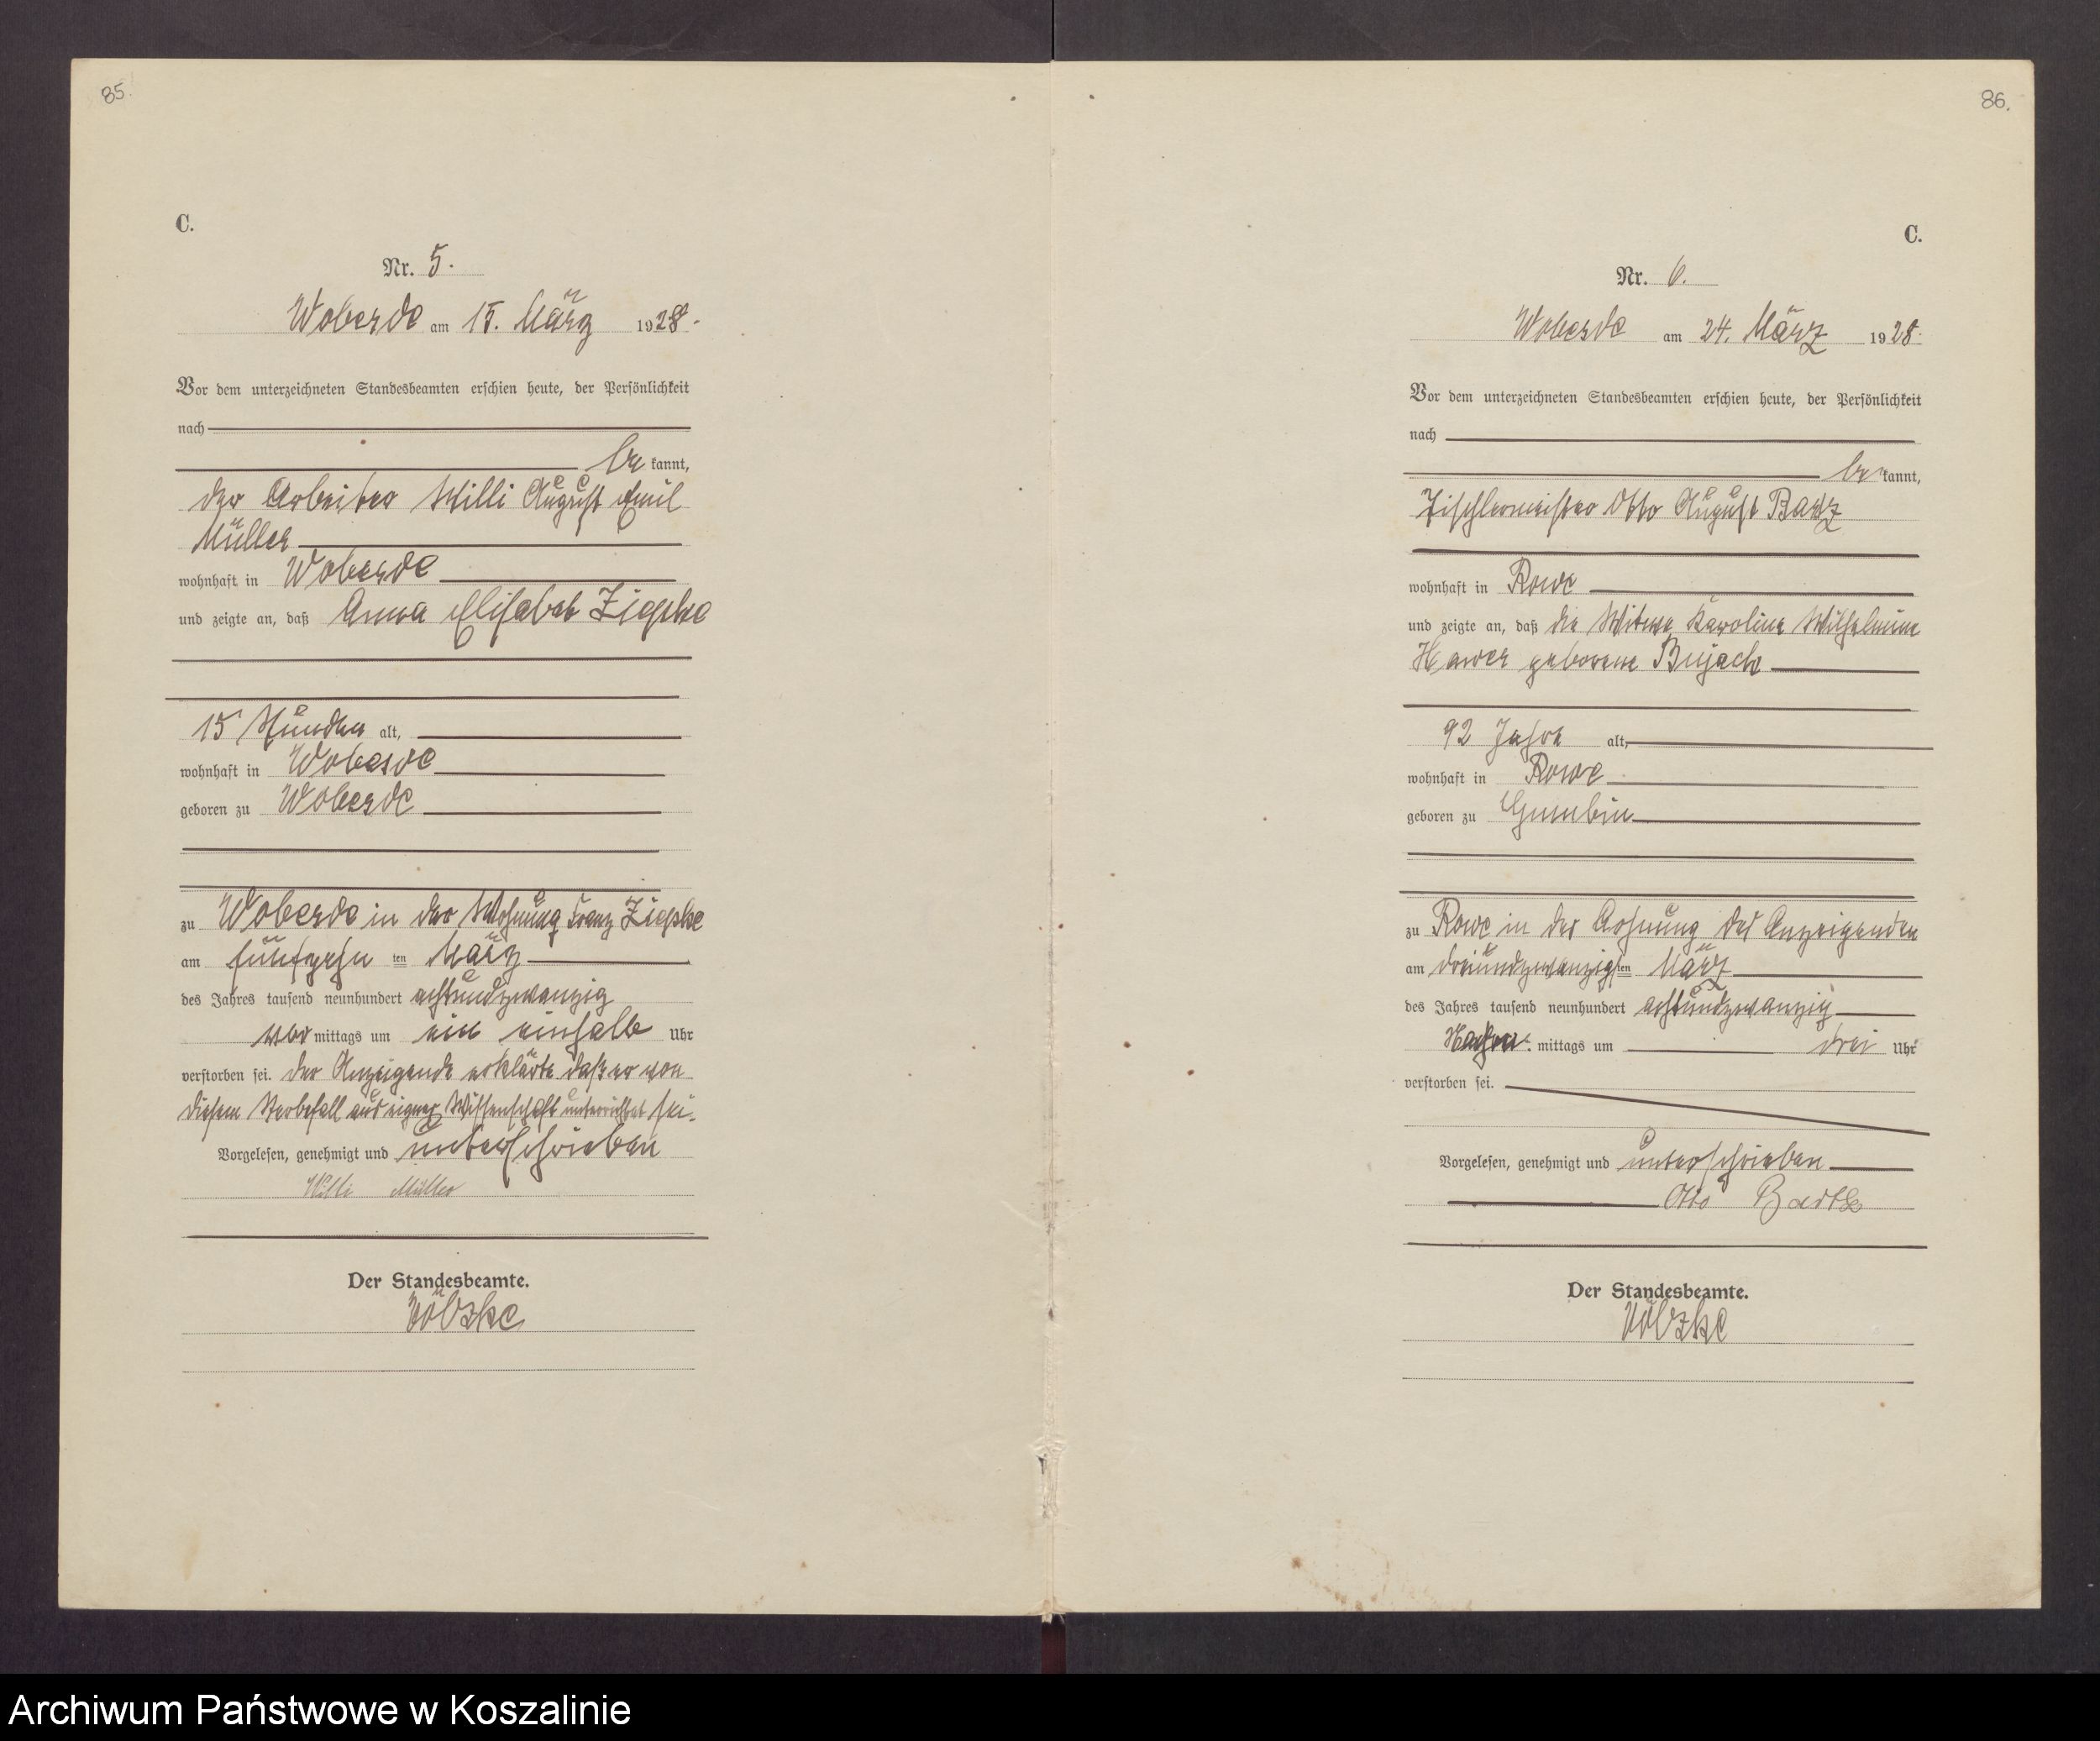 85.
C.
Nr. 5.
Wobesde am 15. März 1928.
Vor dem unterzeichneten Standesbeamten erschien heute, der Persönlichkeit
nach
be kannt,
der Arbeiter Willi August Emil
Müller
wohnhaft in Wobesde
und zeigte an, daß Anna Elisabet Ziepke
15 Stunden alt,
wohnhaft in Wobesde
geboren zu Wobesde
zu Wobesde in der Wohnung Franz Ziepke
am fünfzehn ten März
des Jahres tausend neunhundert achtundzwanzig
vor mittags um ein einhalb Uhr
verstorben sei. Der Anzeigende erklärte daß er von
diesem Sterbefall aus eigner Wissenschaft unterrichtet sei.
Vorgelesen, genehmigt und unterschrieben
Willi Müller
Der Standesbeamte.
Völzke
86.
C.
Nr. 6.
Wobesde am 24. März 1928.
Vor dem unterzeichneten Standesbeamten erschien heute, der Persönlichkeit
nach
be kannt,
Tischlermeister Otto August Bartz
wohnhaft in Rowe
und zeigte an, daß die Witwe Karoline Wilhelmine
Hawer geborene Bujack
92 Jahre alt,
wohnhaft in Rowe
geboren zu Gumbin
zu Rowe in der Wohnung des Anzeigenden
am dreiundzwanzigsten März
des Jahres tausend neunhundert achtundzwanzig
Nach mittags um drei Uhr
verstorben sei.
Vorgelesen, genehmigt und unterschrieben
Otto Bartz
Der Standesbeamte.
Völzke
Archiwum Państwowe w Koszalinie